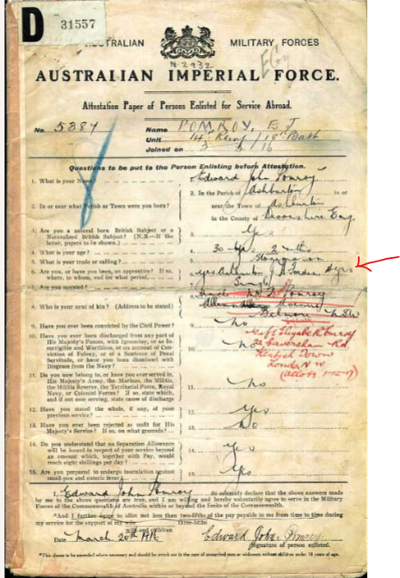 D
31557
AUSTRALIAN MILITARY FORCES
N 2432
AUSTRALIAN IMPERIAL FORCE.
Attestation Paper of Persons Enlisted for Service Abroad.
No. 5384 Name POMROY, E J
Unit 14th Rein / 18th Battn
Joined on 3 16
Questions to be put to the Person Enlisting before Attestation.
1. What is your Name? Edward John Pomroy
2. In or near what Parish or Town were you born? 2. In the Parish of Ashburton in or
near the Town of Ashburton
in the County of Devonshire Eng.
3. Are you a natural born British Subject or a
Naturalised British Subject? (N.B.—If the
latter, papers to be shown.) 3. Yes
4. What is your age? 30 2
5. What is your trade or calling?
6. Are you, or have you been, an Apprentice? If so,
where, to whom, and for what period? yes Ashburton
7. Are you married? Single
8. Who is your next of kin? (Address to be stated) Pomroy
Belmore NSW
London
9. Have you ever been convicted by the Civil Power? No
10. Have you ever been discharged from any part of
His Majesty's Forces, with Ignominy, or as In-
corrigible and Worthless, or on account of Con-
viction of Felony, or of a Sentence of Penal
Servitude, or have you been dismissed with
Disgrace from the Navy? No
11. Do you now belong to, or have you ever served
in, His Majesty's Army, the Marines, the Militia,
the Militia Reserve, the Territorial Force, Royal
Navy, or Colonial Forces? If so, state which,
and if not now serving, state cause of discharge 11. No
12. Have you stated the whole, if any, of your
previous service? 12. Yes
13. Have you ever been rejected as unfit for His
Majesty's Service? If so, on what grounds? 13. No
14. Do you understand that no Separation Allowance
will be issued in respect of your service beyond
an amount which, together with Pay, would
reach eight shillings per day? 14. Yes
15. Are you prepared to undergo inoculation against
small-pox and enteric fever? 15. Yes
I, Edward John Pomroy do solemnly declare that the above answers made
by me to the above questions are true, and I am willing and hereby voluntarily agree to serve in the Military
Forces of the Commonwealth of Australia within or beyond the limits of the Commonwealth.
*And I further agree to allot not less than two-fifths of the pay payable to me from time to time during
my service for the support of my wife
wife and children.
Date March 20th 1916 Edward John Pomroy
Signature of person enlisted.